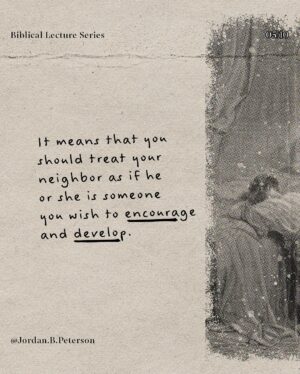 Biblical Lecture Series
05.10
It means that you
should treat your
neighbor as if he
or she is someone
you wish to encourage
and develop.
@Jordan.B.Peterson